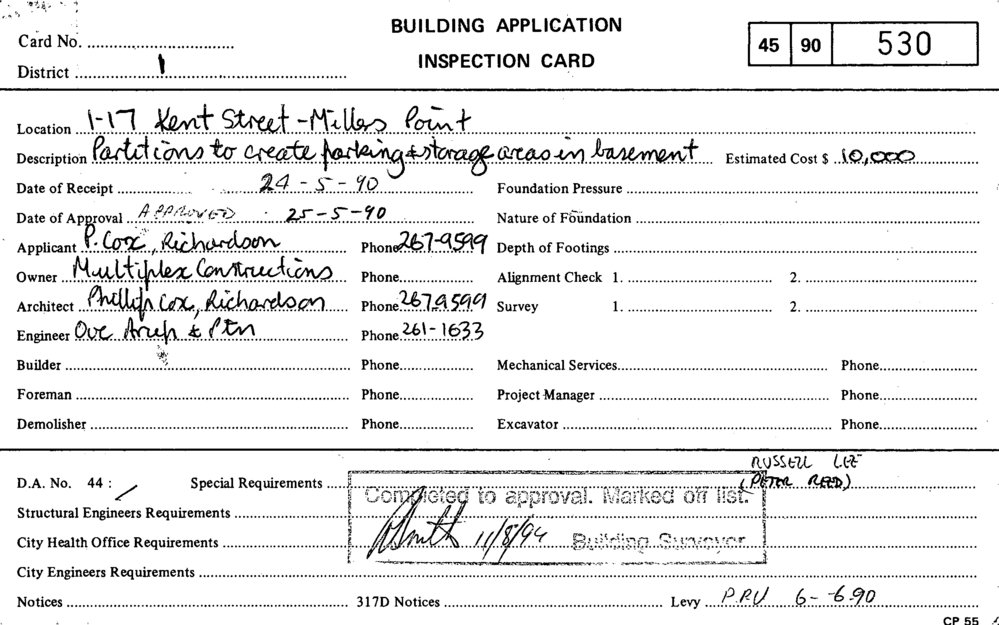 BUILDING APPLICATION
Card No.
45 90 530
INSPECTION CARD
District 1
Location 1-17 Kent Street - Millers Point
Description Partitions to create parking & storage areas in basement Estimated Cost $ 10,000
Date of Receipt 24-5-90 Foundation Pressure
Date of Approval APPROVED 25-5-90 Nature of Foundation
Applicant P. Cox, Richardson Phone 267-9599 Depth of Footings
Owner Multiplex Constructions Phone Alignment Check 1. 2.
Architect Phillip Cox, Richardson Phone 267 9599 Survey 1. 2.
Engineer Ove Arup & Ptn Phone 261-1633
Builder Phone Mechanical Services Phone
Foreman Phone Project Manager Phone
Demolisher Phone Excavator Phone
RUSSELL LEE
D.A. No. 44 : / Special Requirements (PETER REED)
Completed to approval. Marked off list.
Structural Engineers Requirements
City Health Office Requirements Smith 11/8/94 Building Surveyor
City Engineers Requirements
Notices 317D Notices Levy P.R.U 6-6-90
CP 55